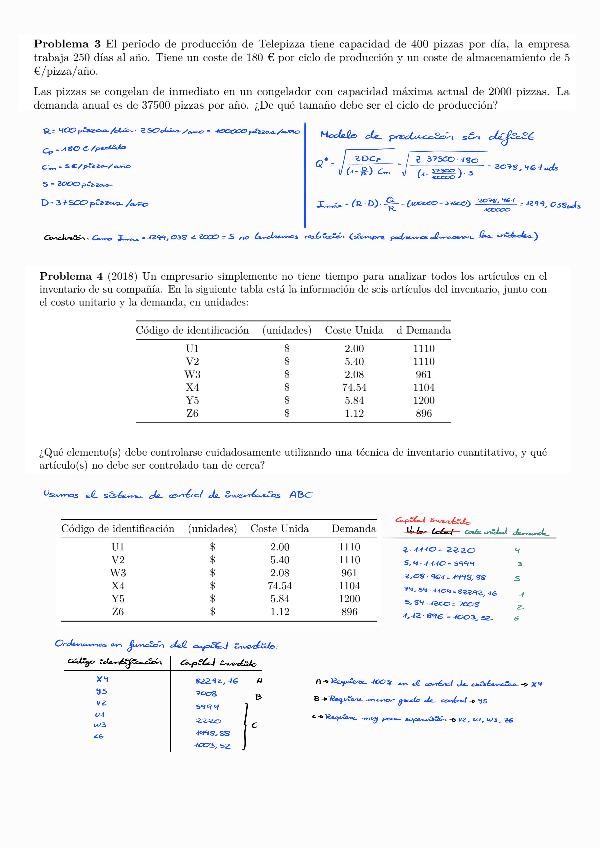 Problema 3 El periodo de producción de Telepizza tiene capacidad de 400 pizzas por día, la empresa
trabaja 250 días al año. Tiene un coste de 180 € por ciclo de producción y un coste de almacenamiento de 5
€/pizza/año.
Las pizzas se congelan de inmediato en un congelador con capacidad máxima actual de 2000 pizzas. La
demanda anual es de 37500 pizzas por año. ¿De qué tamaño debe ser el ciclo de producción?
R = 400 pizzas/día · 250 días/año = 100000 pizzas/año
Cp = 180 €/pedido
Cm = 5 €/pizza/año
S = 2000 pizzas
D = 37500 pizzas/año
Modelo de producción sin déficit
Q* = √(2DCp / (1 - D/R) Cm) = √(2 · 37500 · 180 / (1 - 37500/100000) · 5) = 2078,461 uds
Imáx = (R - D) · Q/R = (100000 - 37500) · 2078,461/100000 = 1299,038 uds
Conclusión: Como Imáx = 1299,038 < 2000 = S no tendremos restricción (siempre podremos almacenar las unidades)
Problema 4 (2018) Un empresario simplemente no tiene tiempo para analizar todos los artículos en el
inventario de su compañía. En la siguiente tabla está la información de seis artículos del inventario, junto con
el costo unitario y la demanda, en unidades:
Código de identificación (unidades) Coste Unida d Demanda
U1 $ 2.00 1110
V2 $ 5.40 1110
W3 $ 2.08 961
X4 $ 74.54 1104
Y5 $ 5.84 1200
Z6 $ 1.12 896
¿Qué elemento(s) debe controlarse cuidadosamente utilizando una técnica de inventario cuantitativo, y qué
artículo(s) no debe ser controlado tan de cerca?
Usamos el sistema de control de inventarios ABC
Código de identificación (unidades) Coste Unida Demanda
U1 $ 2.00 1110
V2 $ 5.40 1110
W3 $ 2.08 961
X4 $ 74.54 1104
Y5 $ 5.84 1200
Z6 $ 1.12 896
Capital invertido
Valor total = coste unidad · demanda
2 · 1110 = 2220 4
5,4 · 1110 = 5994 3
2,08 · 961 = 1998,88 5
74,54 · 1104 = 82292,16 1
5,84 · 1200 = 7008 2
1,12 · 896 = 1003,52 6
Ordenamos en función del capital invertido:
Código identificación Capital invertido
X4 82292,16 A
Y5 7008 B
V2 5994
U1 2220 C
W3 1998,88
Z6 1003,52
A → Requiere 100% en el control de existencias → X4
B → Requiere menor grado de control → Y5
C → Requiere muy poca supervisión → V2, U1, W3, Z6